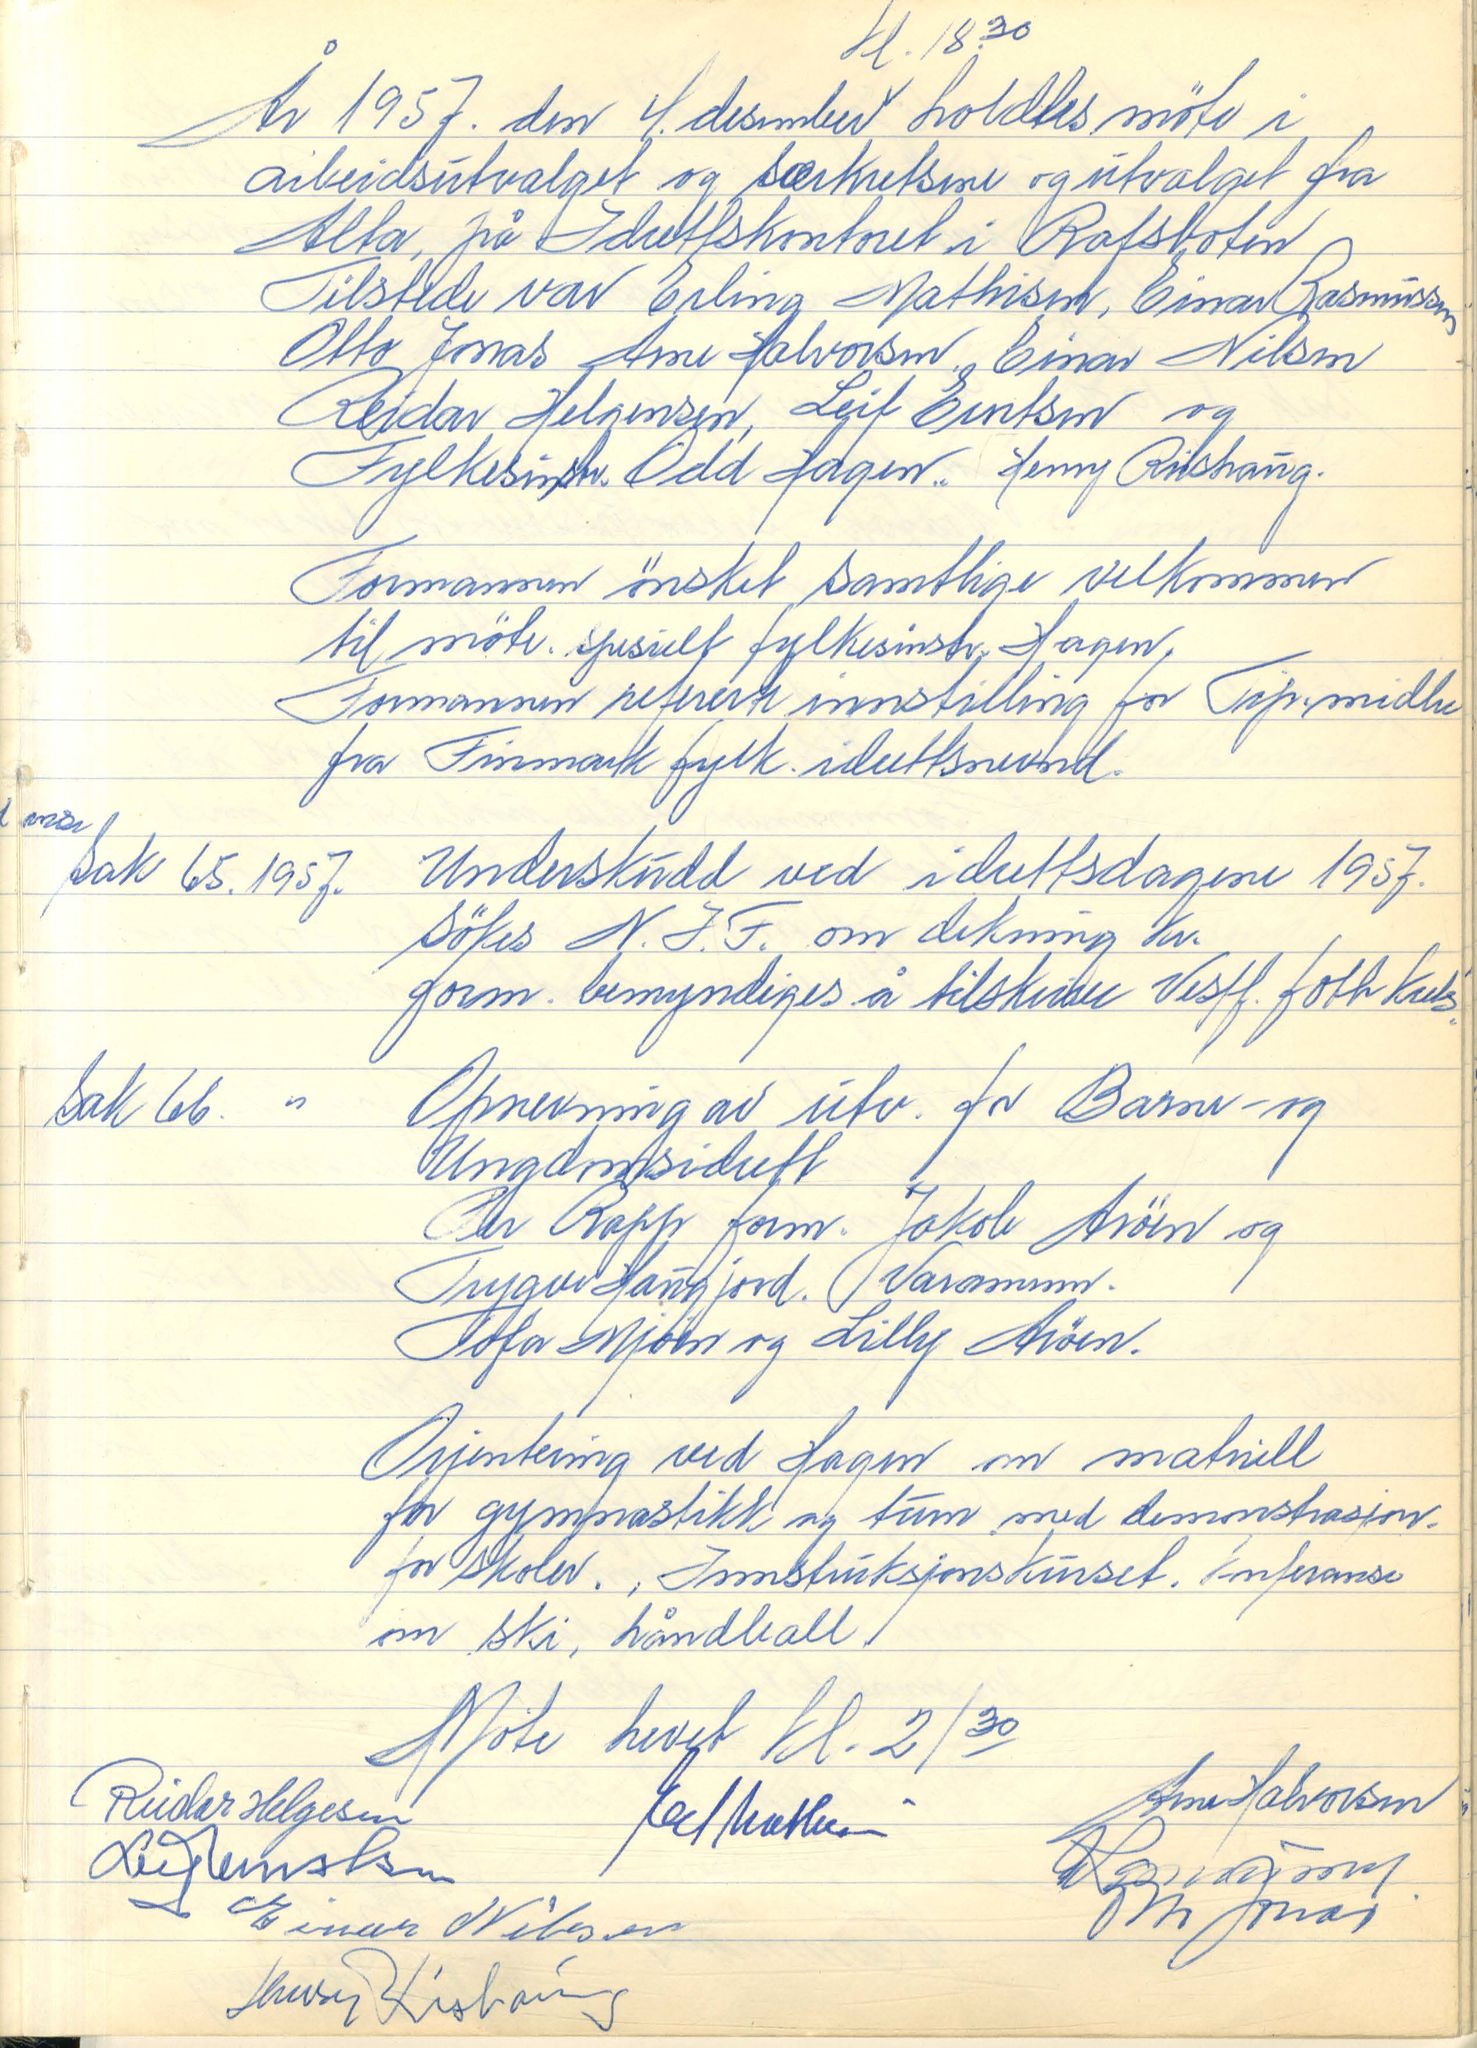 kl. 18.30
År 1957. den 4. desember holdtes möte i
arbeidsutvalget og særkretsene og utvalget fra
Alta, på Idrettskontoret i Rafsboten
Tilstede var Erling Mathisen, Einar Rasmussen
Otto Jonas Arne Halvorsen, Einar Nilsen
Reidar Helgensen, Leif Erntsen og
Fylkesinstr. Odd Hagen.. Henny Rishaug.
Formannen önsket samtlige velkommen
til möte. spesielt fylkesinstr. Hagen,
Formannen refererte innstilling for Tip.midler
fra Finmark fylk. idrettsnevnd.
Sak 65. 1957. Underskudd ved idrettsdagene 1957.
sökes N.I.F. om dekning av.
form. bemyndiges å tilskrive Vestf. fotb krets.
Sak 66. " Opnevning av utv. for Barne- og
Ungdomsidrett
Per Rapp form. Jakob Aröen og
Trygve Haugjord. Varamenn.
Tofa Mjöen og Lilly Aröen.
Orjentering ved Hagen om matriell
for gymnastikk og turn med demonstrasjon.
for skoler. , Innstruksjonskurset.
om ski, håndball.
Möte hevet kl. 21 30
Reidar Helgesen
Arne Halvorsen
Einar Nilsen
Otto Jonas
Henny Rishaug